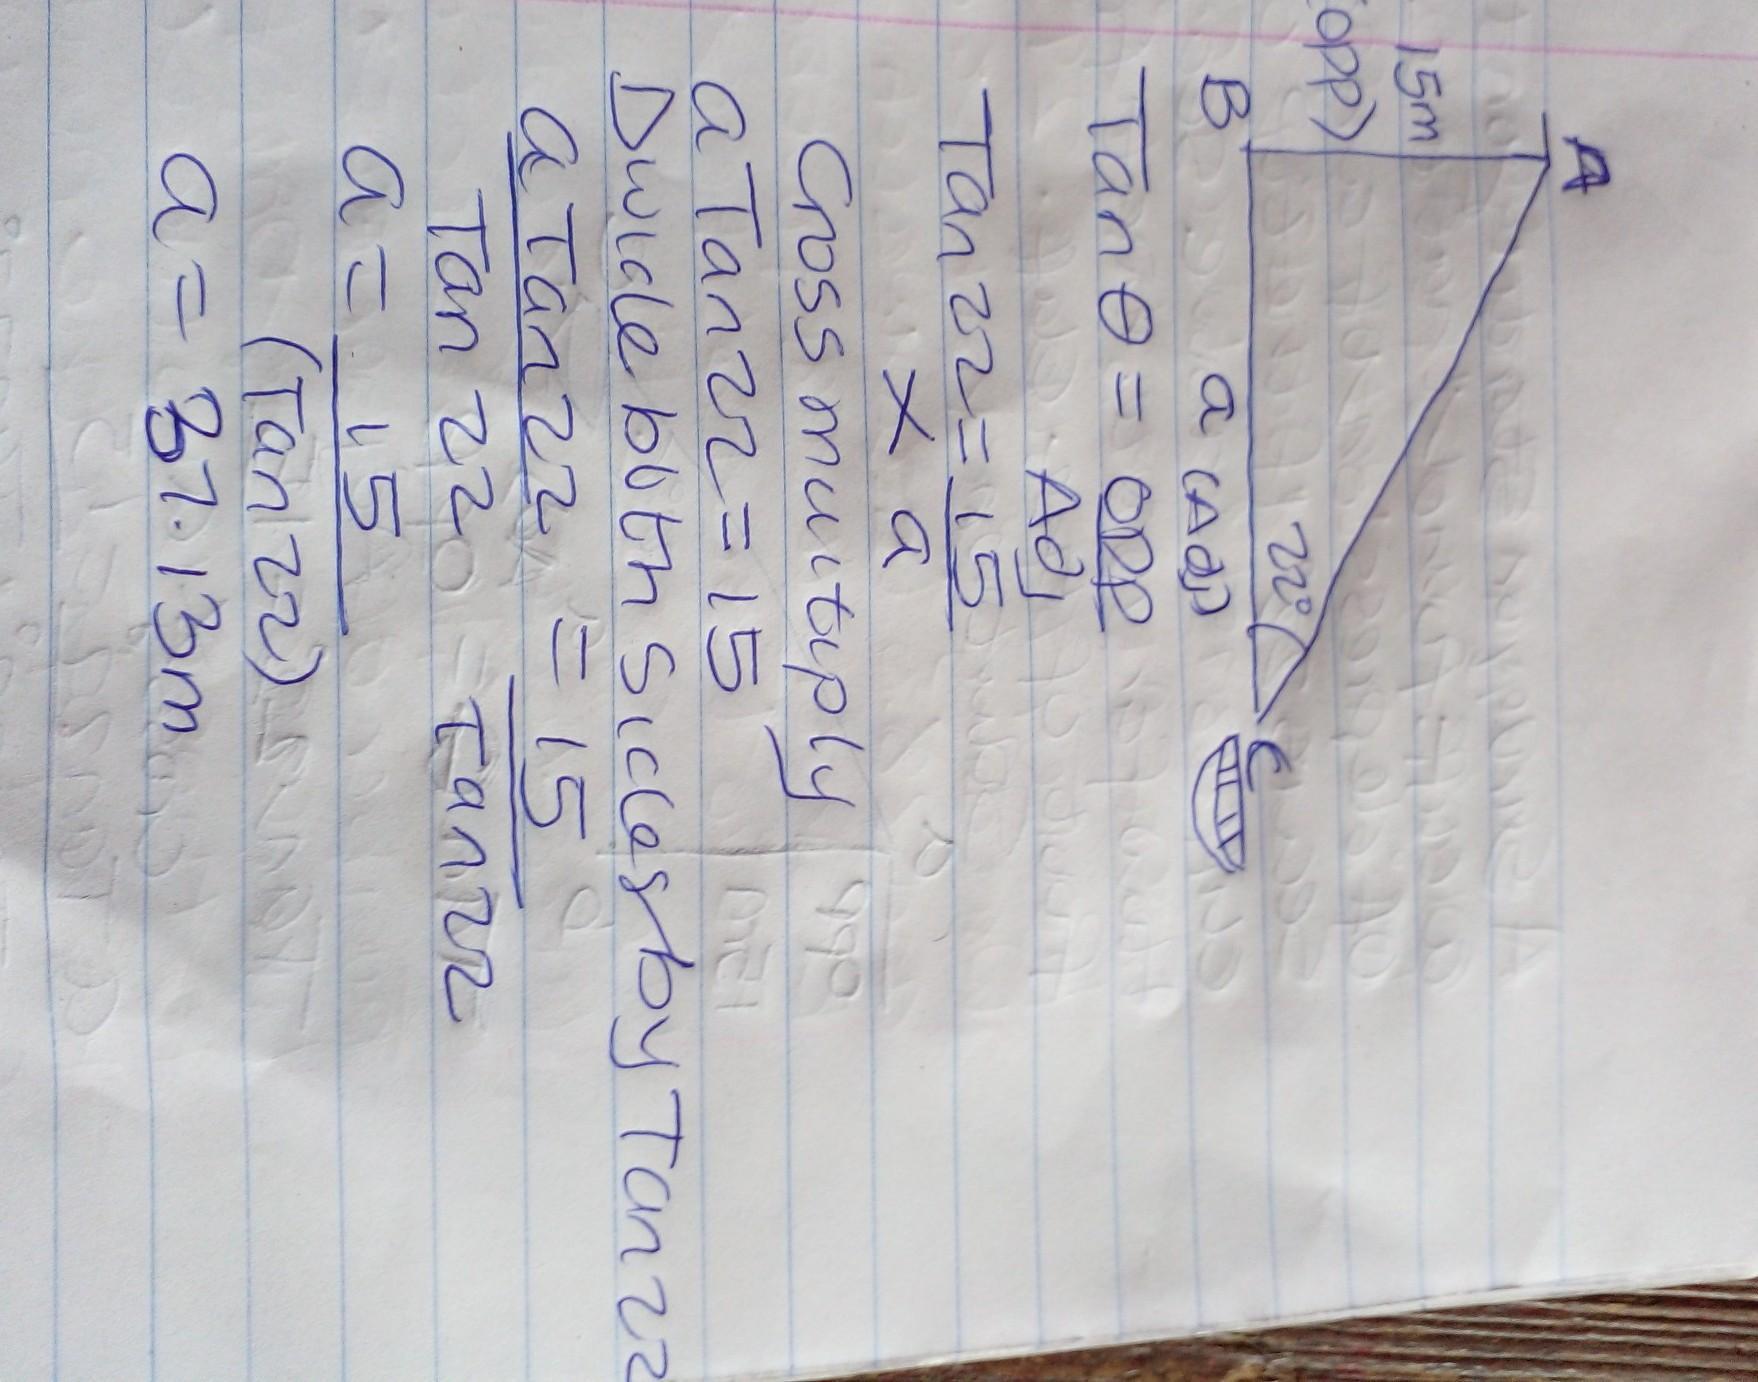 A
15m
(opp)
B
a (Adj)
22°
C
Tan θ = opp
Adj
Tan 22 = 15
x a
Cross multiply
a Tan 22 = 15
Divide both sides by Tan 22
a Tan 22 = 15
Tan 22 Tan 22
a = 15
(Tan 22)
a = 37.13m